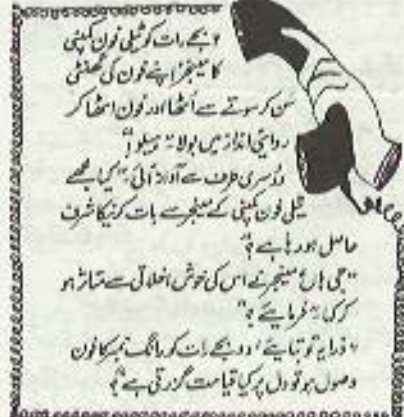 ۲ بجے رات کو ٹیلی فون کمپنی
کا مینجر اپنے فون کی گھنٹی
سن کر سوتے سے اٹھا اور فون اٹھا کر
روایتی انداز میں بولا "ہیلو"
دوسری طرف سے آواز آئی "کیا مجھے
ٹیلی فون کمپنی کے مینجر سے بات کرنیکا شرف
حاصل ہو رہا ہے؟"
"جی ہاں" مینجر نے اس کی خوش اخلاقی سے متاثر ہو
کر کہا "فرمایئے؟"
"ذرا یہ تو بتایئے' دو بجے رات کو رانگ نمبر کا فون
وصول ہو تو دل پر کیا قیامت گزرتی ہے؟"